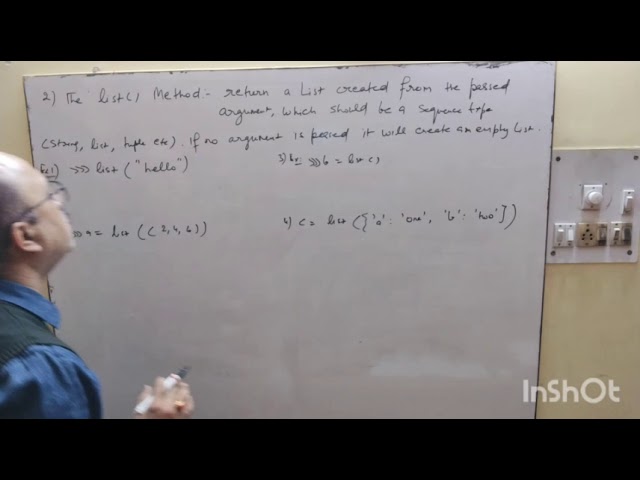 2) The list() Method:- return a List created from the passed
argument, which should be a sequence type
(string, list, tuple etc). If no argument is passed it will create an empty List.
Ex1) >>> list("hello")
3) Ex: >>> b = list()
>>> a = list((2,4,6))
4) c = list({'a': 'one', 'b': 'two'})
InShOt